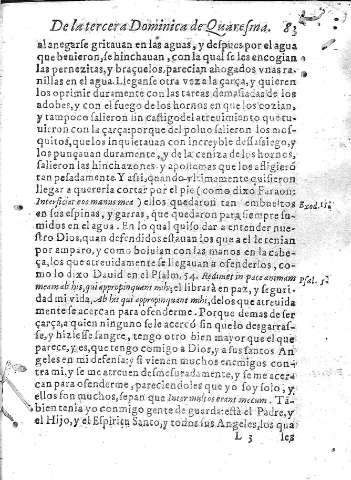 De la tercera Dominica de Quaresma. 83
al anegarse gritauan en las aguas, y despues por el agua
que beuieron, se hinchauan, con la qual se les encogian
las pernezitas, y braçuelos, parecian ahogados vnas ra-
nillas en el agua. Lleganse otra vez a la çarça, y quieren
los oprimir duramente con las tareas demasiadas de los
adobes, y con el fuego de los hornos en que los cozian,
y tampoco salieron sin castigo del atreuimiento que tu-
uieron con la çarça: porque del poluo salieron los mos-
quitos, que los inquietauan con increyble dessassiego, y
los punçauan duramente, y de la ceniza de los hornos,
salieron las hinchazones y apostemas que los afligierõ
tan pesadamente. Y assi, quando vltimamente quisieron
llegar a quererla cortar por el pie (como dixo Faraon:
Interficiet eos manus mea) ellos quedaron tan embueltos Exod. 15.
en sus espinas, y garras, que quedaron para siempre su-
midos en el agua. En lo qual quiso dar a entender nues-
tro Dios, quan defendidos estauan los que a el le tenian
por amparo, y como boluian con las manos en la cabe-
ça, los que atreuidamente se llegauan a ofenderlos, co-
mo lo dixo Dauid en el Psalm. 54. Redimet in pace animam Psal. 54
meam ab his, qui appropinquant mihi; el librarà en paz, y seguri
dad mi vida, Ab his qui appropinquant mihi, de los que atreuida
mente se acercan para ofenderme. Porque demas de ser
çarça, a quien ninguno se le acercó sin que lo desgarras-
se, y hiziesse sangre, tengo otro bien mayor que el que
parece, y es, que tengo comigo a Dios, y a sus santos An
geles en mi defensa: y si vienen muchos enemigos con-
tra mi, y se me atreuen desmesuradamente, y se me acer-
can para ofenderme, pareciendoles que yo soy solo, y
ellos son muchos, sepan que Inter multos erant mecum. Ta-
bien tenia yo conmigo gente de guarda: està el Padre, y
el Hijo, y el Espiritu Santo, y todos sus Angeles, los qua
L 3 les